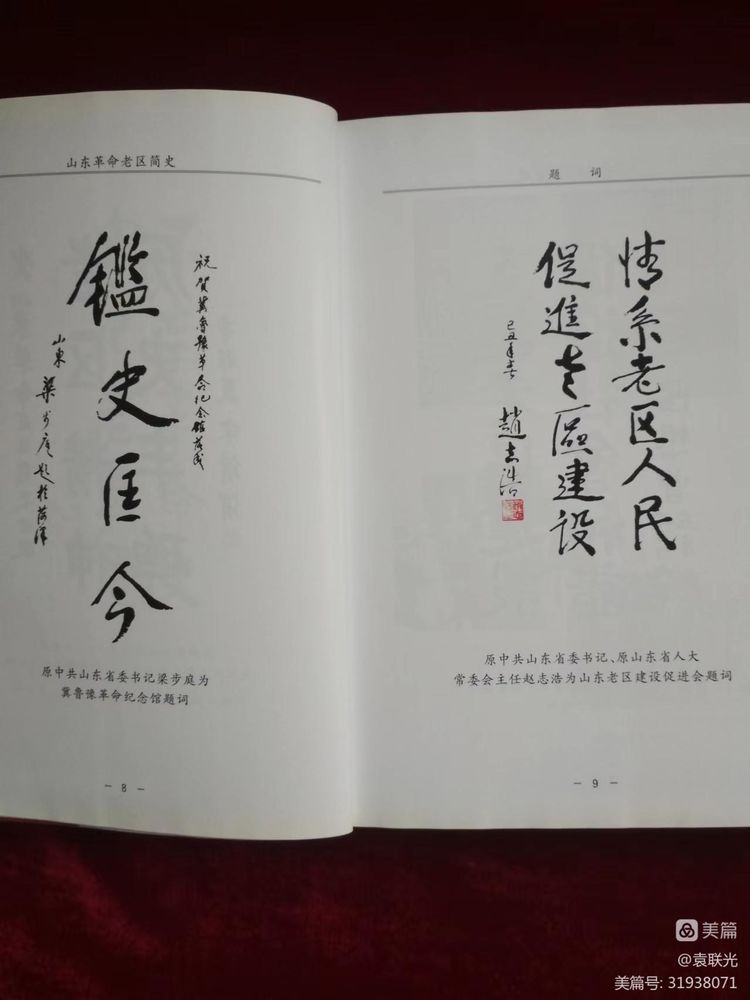 山东革命老区简史
祝贺冀鲁豫革命纪念馆落成
鑑史匡今
山東 梁步庭题於菏泽
原中共山东省委书记梁步庭为
冀鲁豫革命纪念馆题词
— 8 —
题 词
情系老区人民
促進老區建设
己丑年春
趙志浩
原中共山东省委书记、原山东省人大
常委会主任赵志浩为山东老区建设促进会题词
— 9 —
美篇
@袁联光
美篇号: 31938071